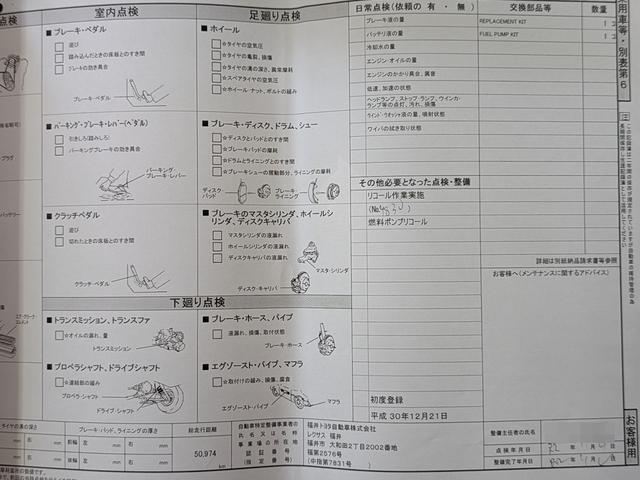 室内点検
足廻り点検
日常点検(依頼の 有 ・ 無)
交換部品等
数量
用車等・別表第6
■ブレーキ・ペダル
遊び
踏み込んだときの床板とのすき間
ブレーキの効き具合
ブレーキ・ペダル
■パーキング・ブレーキ・レバー(ペダル)
引きしろ(踏みしろ)
パーキングブレーキの効き具合
パーキング・
ブレーキ・レバー
■クラッチペダル
遊び
切れたときの床板とのすき間
クラッチ・ペダル
■ホイール
☆タイヤの空気圧
☆タイヤの亀裂、損傷
☆タイヤの溝の深さ、異常摩耗
☆スペアタイヤの空気圧
☆ホイール・ナット、ボルトの緩み
■ブレーキ・ディスク、ドラム、シュー
☆ディスクとパッドとのすき間
☆ブレーキパッドの摩耗
☆ドラムとライニングとのすき間
☆ブレーキシューの摺動部分、ライニングの摩耗
ディスク・
パッド
ブレーキ・
ライニング
■ブレーキのマスタシリンダ、ホイールシ
リンダ、ディスクキャリパ
マスタシリンダの液漏れ
ホイールシリンダの液漏れ
ディスクキャリパの液漏れ
マスタ・シリンダ
ディスク・キャリパ
下廻り点検
■トランスミッション、トランスファ
☆オイルの漏れ、量
トランスミッション
■プロペラシャフト、ドライブシャフト
☆連結部の緩み
プロペラ・シャフト
ドライブ・シャフト
■ブレーキ・ホース、パイプ
液漏れ、損傷、取付状態
ブレーキ・ホース
■エグゾースト・パイプ、マフラ
☆取付けの緩み、損傷、腐食
エグゾースト・パイプ
マフラ
ブレーキ液の量
バッテリ液の量
冷却水の量
エンジン・オイルの量
エンジンのかかり具合、異音
低速、加速の状態
ヘッドランプ、ストップ・ランプ、ウインカ・
ランプ等の点灯、汚れ、損傷
ウインド・ウオッシャ液の量、噴射状態
ワイパの拭き取り状態
REPLACEMENT KIT
1
FUEL PUMP KIT
1
その他必要となった点検・整備
リコール作業実施
燃料ポンプリコール
詳細は別紙納品請求書等参照
お客様へ(メンテナンスに関するアドバイス)
初度登録
平成 30年12月21日
タイヤの溝の深さ
ブレーキ・パッド、ライニングの厚さ
総走行距離
50,974
km
自動車特定整備事業者の
氏名又は名称
事業場の所在地
認証番号
(指定番号)
福井トヨタ自動車株式会社
レクサス 福井
福井市 大和田2丁目2002番地
福第2576号
(中指第7831号)
整備主任者の氏名
点検年月日
整備完了年月日
お客様用